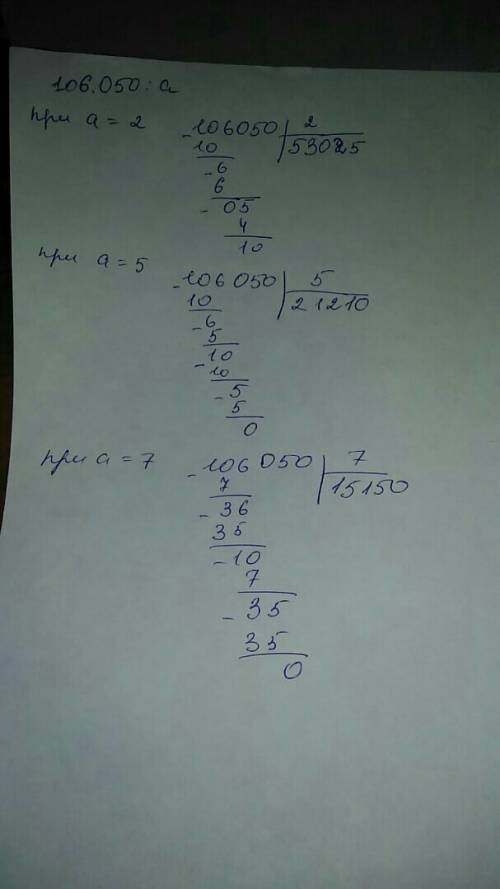 106.050 : а
при а = 2
-106050 2
10 53025
-6
6
- 05
4
10
при а = 5
-106 050 5
10 21210
-6
5
-10
10
-5
5
0
при а = 7
-106 050 7
7 15150
-36
35
-10
7
-35
35
0